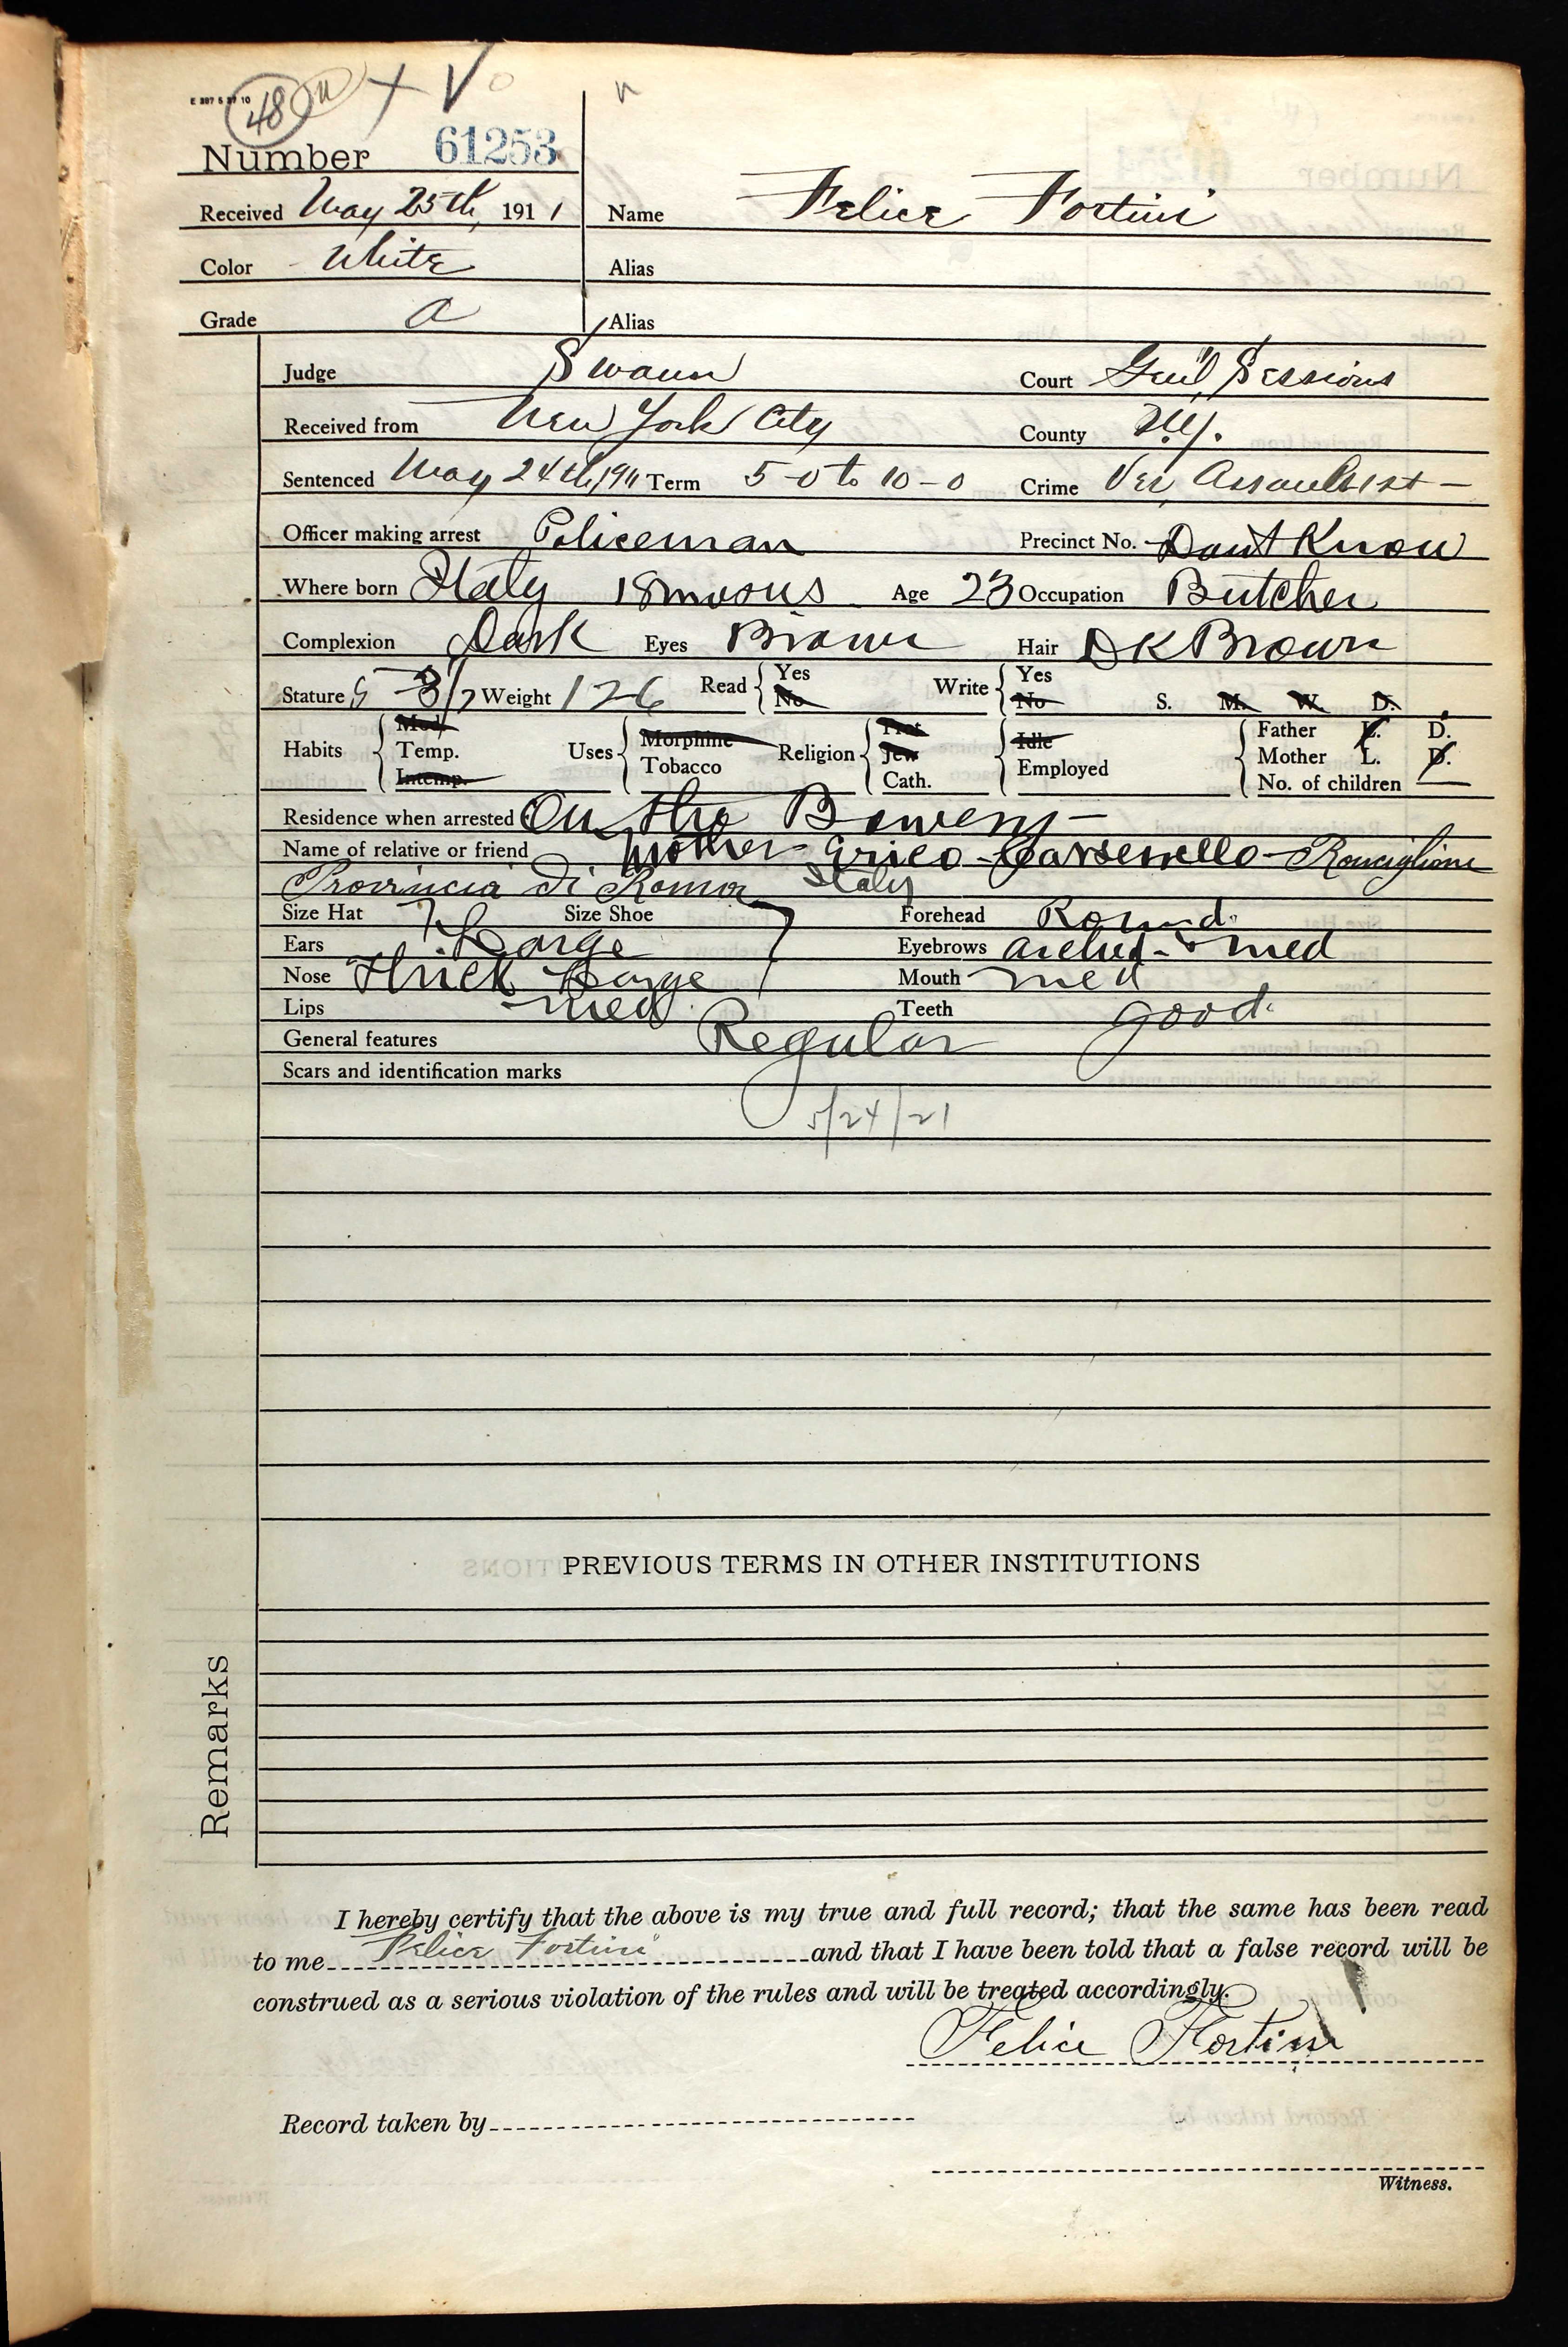 48
Number 61253
Received May 25th, 1911 Name Felice Fortini
Color White Alias
Grade a Alias
Judge Swann Court Gen'l Sessions
Received from New York City County N.Y.
Sentenced May 24th, 1911 Term 5-0 to 10-0 Crime Ver, Assault 1st
Officer making arrest Policeman Precinct No. Dont Know
Where born Italy 18 mos US Age 23 Occupation Butcher
Complexion Dark Eyes Brown Hair DK Brown
Stature 5-3 1/2 Weight 126 Read { Yes No Write { Yes No S. M. W. D.
Habits { Mod. Temp. Intemp. Uses { Morphine Tobacco Religion { Prot. Jew Cath. { Idle Employed { Father L. D. Mother L. D. No. of children —
Residence when arrested On the Bowery
Name of relative or friend Mother Ronciglione
Provincia di Roma Italy
Size Hat 7 Size Shoe 7 Forehead Round
Ears Large Eyebrows arched - med
Nose Thick Large Mouth med
Lips med Teeth good
General features Regular
Scars and identification marks
5/24/21
PREVIOUS TERMS IN OTHER INSTITUTIONS
Remarks
I hereby certify that the above is my true and full record; that the same has been read
to me Felice Fortini and that I have been told that a false record will be
construed as a serious violation of the rules and will be treated accordingly.
Felice Fortini
Record taken by
Witness.